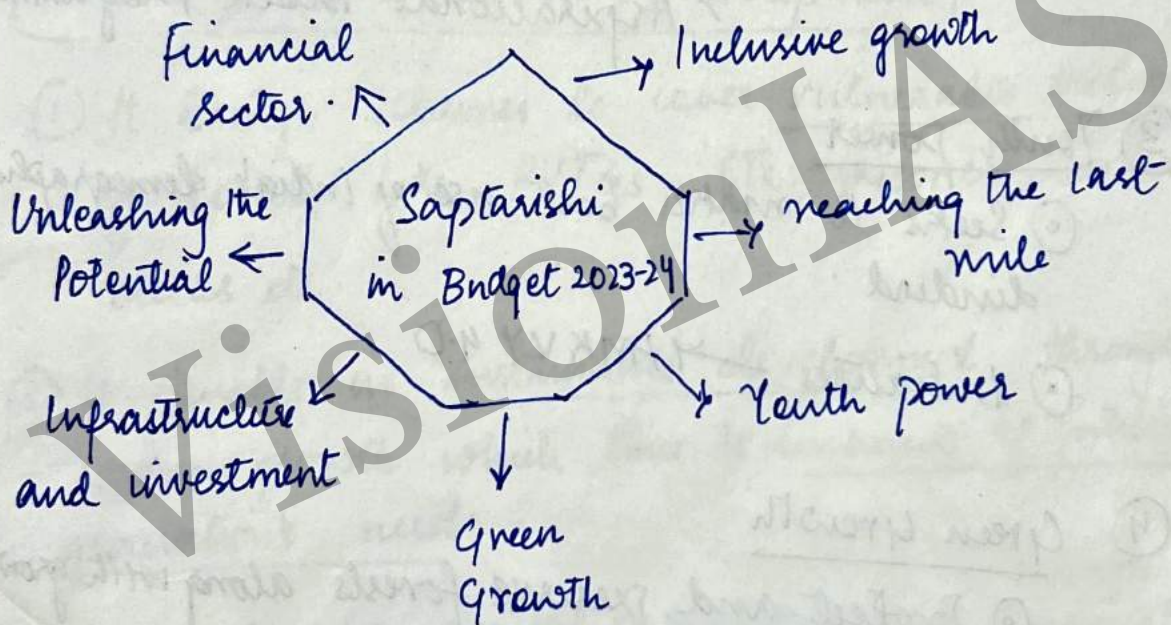 Financial
sector.
Inclusive growth
Unleashing the
Potential
Saptarishi
in Budget 2023-24
reaching the last-
mile
Infrastructure
and investment
Youth power
Green
Growth
VisionIAS